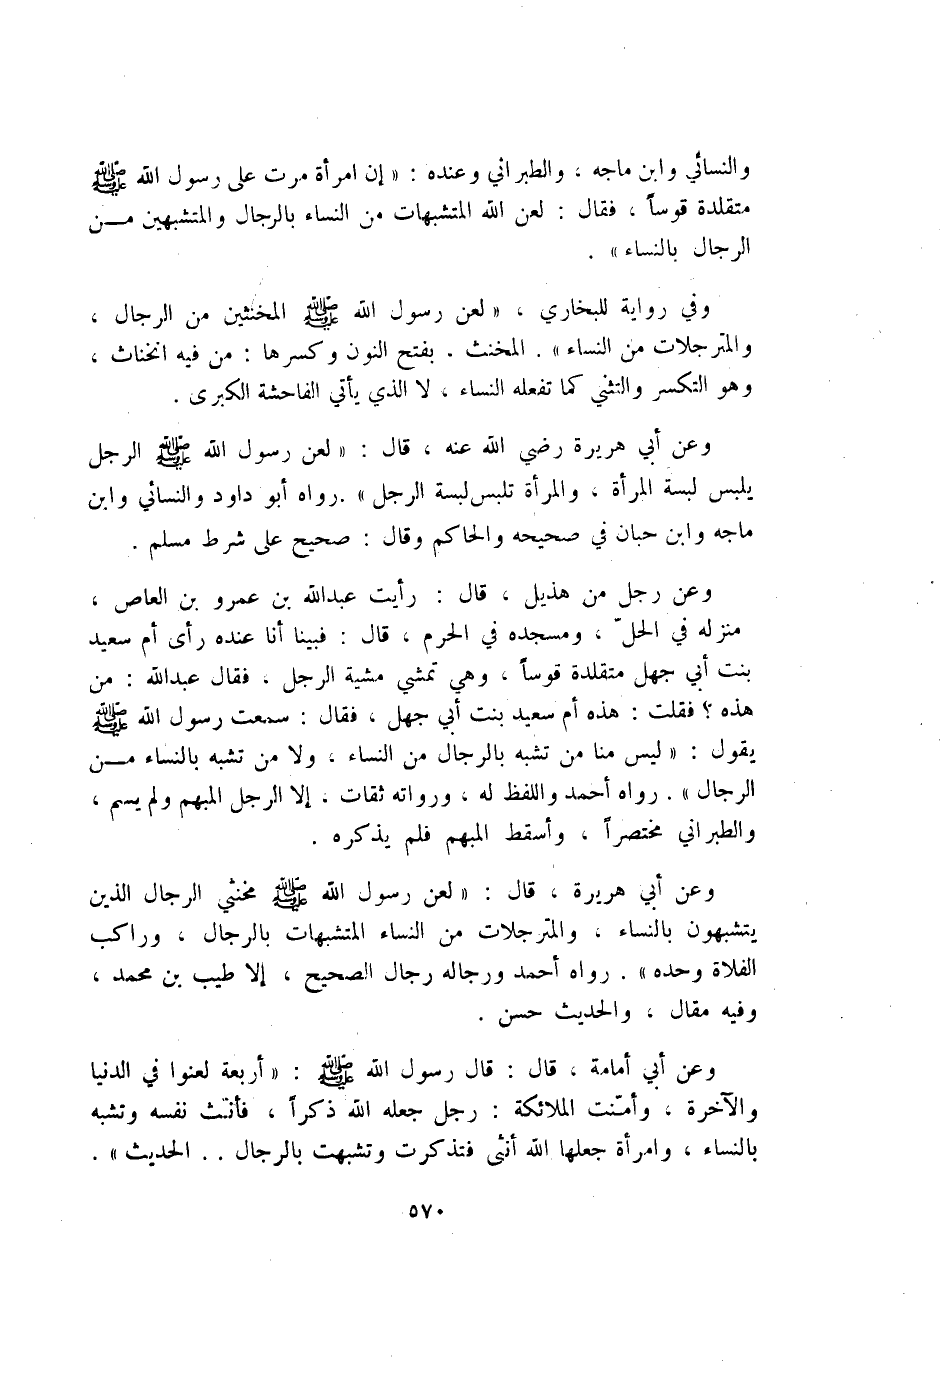 والنسائي وابن ماجه ، والطبراني وعنده : « إن امرأة مرت على رسول الله ﷺ
متقلدة قوساً ، فقال : لعن الله المتشبهات من النساء بالرجال والمتشبهين مـــن
الرجال بالنساء » .
وفي رواية للبخاري ، « لعن رسول الله ﷺ المخنثين من الرجال ،
والمترجلات من النساء » . المخنث . بفتح النون وكسرها : من فيه انخناث ،
وهو التكسر والتثني كما تفعله النساء ، لا الذي يأتي الفاحشة الكبرى .
وعن أبي هريرة رضي الله عنه ، قال : « لعن رسول الله ﷺ الرجل
يلبس لبسة المرأة ، والمرأة تلبس لبسة الرجل » .رواه أبو داود والنسائي وابن
ماجه وابن حبان في صحيحه والحاكم وقال : صحيح على شرط مسلم .
وعن رجل من هذيل ، قال : رأيت عبدالله بن عمرو بن العاص ،
منزله في الحلّ ، ومسجده في الحرم ، قال : فبينا أنا عنده رأى أم سعيد
بنت أبي جهل متقلدة قوساً ، وهي تمشي مشية الرجل ، فقال عبدالله : من
هذه ؟ فقلت : هذه أم سعيد بنت أبي جهل ، فقال : سمعت رسول الله ﷺ
يقول : « ليس منا من تشبه بالرجال من النساء ، ولا من تشبه بالنساء مـــن
الرجال » . رواه أحمد واللفظ له ، ورواته ثقات ، إلا الرجل المبهم ولم يسم ،
والطبراني مختصراً ، وأسقط المبهم فلم يذكره .
وعن أبي هريرة ، قال : « لعن رسول الله ﷺ مخنثي الرجال الذين
يتشبهون بالنساء ، والمترجلات من النساء المتشبهات بالرجال ، وراكب
الفلاة وحده » . رواه أحمد ورجاله رجال الصحيح ، إلا طيب بن محمد ،
وفيه مقال ، والحديث حسن .
وعن أبي أمامة ، قال : قال رسول الله ﷺ : « أربعة لعنوا في الدنيا
والآخرة ، وأمّنت الملائكة : رجل جعله الله ذكراً ، فأنّث نفسه وتشبه
بالنساء ، وامرأة جعلها الله أنثى فتذكرت وتشبهت بالرجال . . الحديث » .
٥٧٠